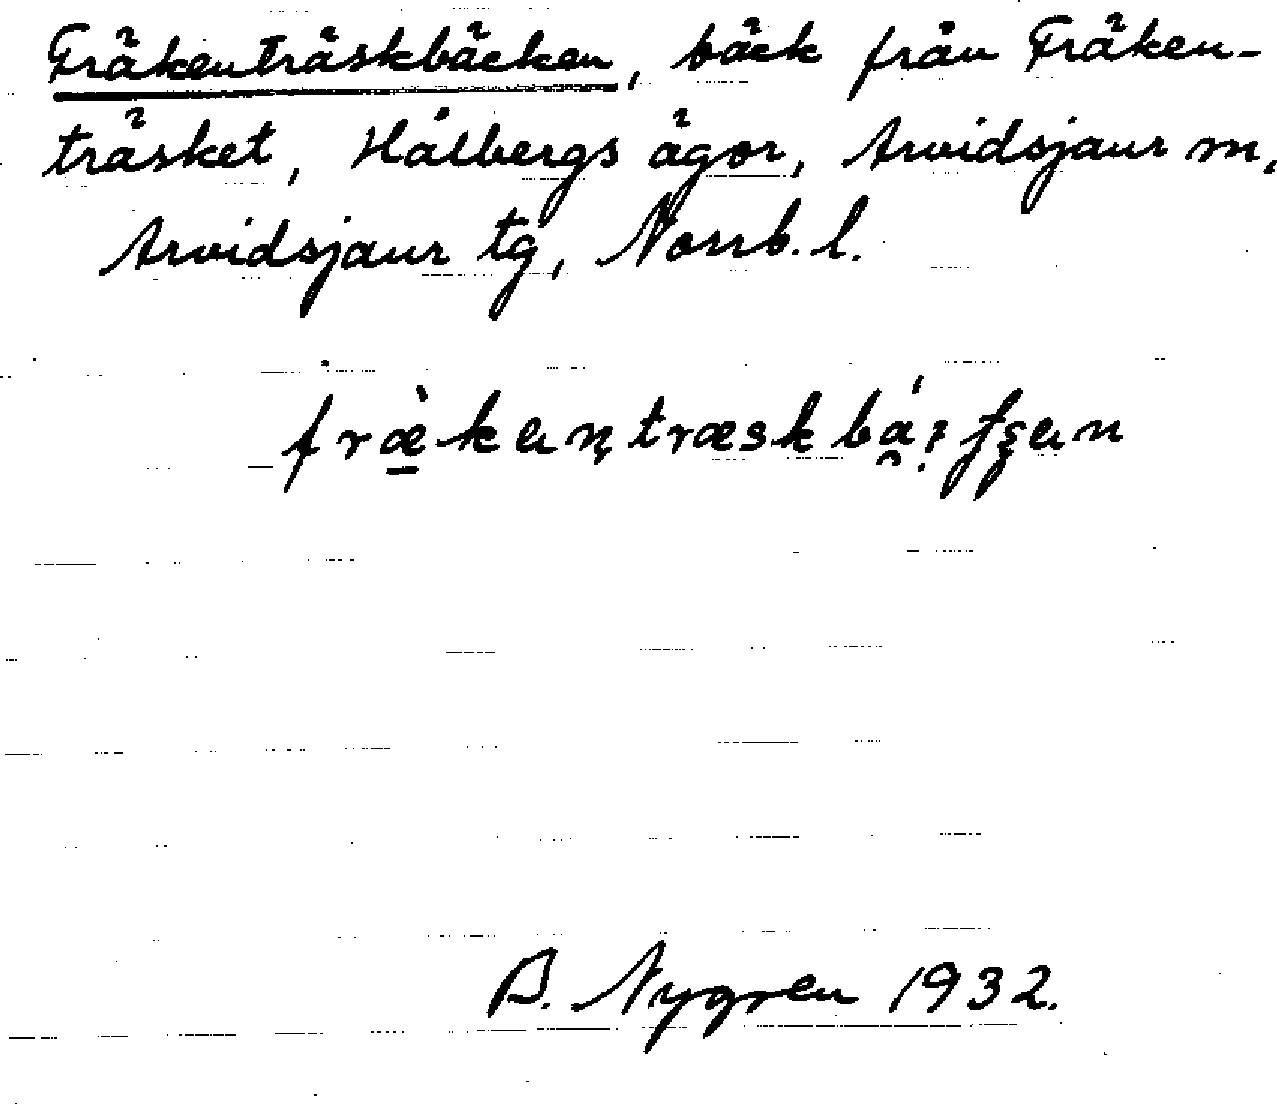 Fräkenträskbäcken, bäck från Fräken-
träsket, Hålbergs ägor, Arvidsjaur m,
Arvidsjaur tg, Norrb. l.
B. Nygren 1932.